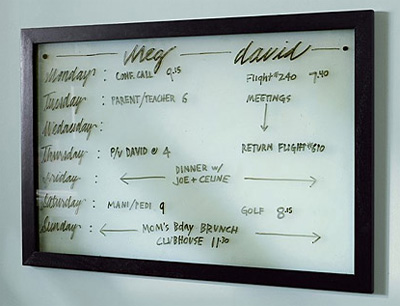 Meg david
Monday : CONF. CALL 9:15 Flight #240 7:40
Tuesday : PARENT/TEACHER 6 MEETINGS
Wednesday :
Thursday : P/U DAVID @ 4 RETURN FLIGHT #610
Friday : DINNER W/
JOE + CELINE
Saturday : MANI/PEDI 9 GOLF 8:15
Sunday : MOM'S BDAY BRUNCH
CLUBHOUSE 11:30